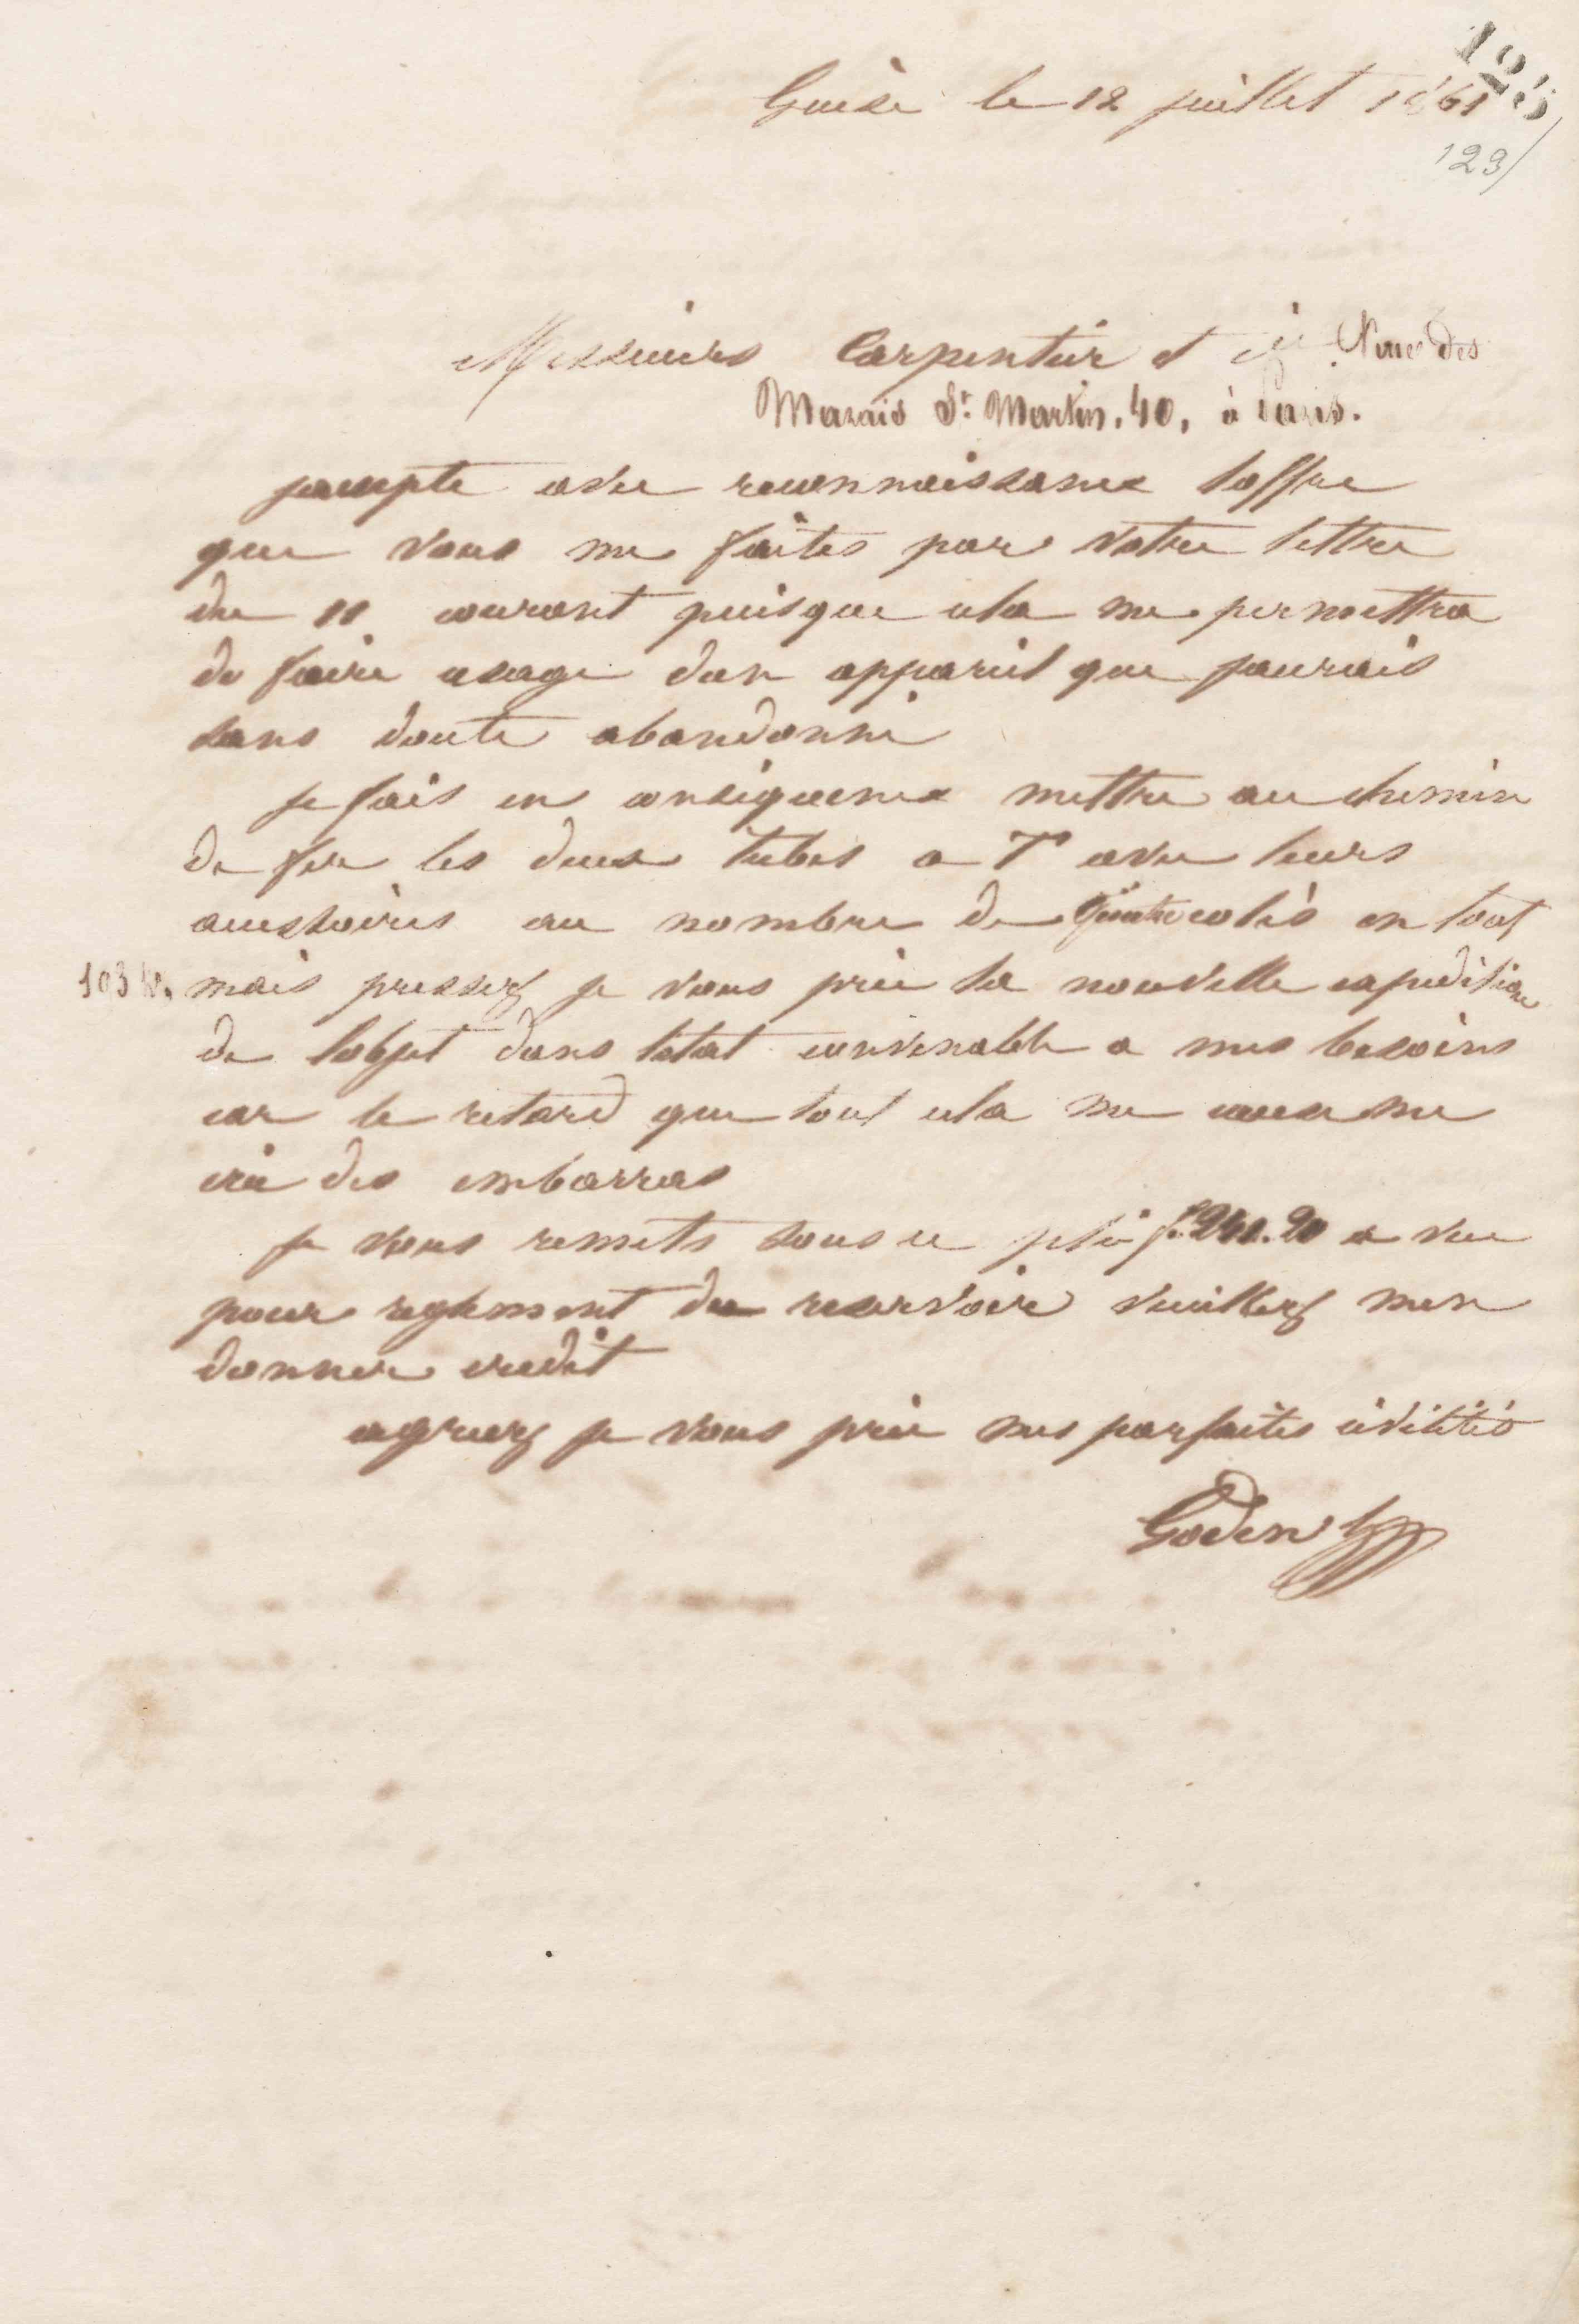 123
Guise le 12 juillet 1861
123/
Messieurs Carpentier et Cie Rue des
Marais St. Martin. 40, à Paris.
jaccepte avec reconnaissance loffre
que vous me faites par votre lettre
du 11 courant puisque cela me permettra
de faire usage dun appareil que jaurais
sans doute abandonné
je fais en conséquence mettre au chemin
de fer les deux tubes a T avec leurs
accessoires au nombre de quatre colis en tout
103 k. mais pressez je vous prie la nouvelle expédition
de lobjet dans létat convenable a mes besoins
car le retard que tout cela me cause me
crée des embarras
je vous remets sous ce pli f. 240.20 a vue
pour reglement du reservoir veuillez men
donner credit
agreez je vous prie mes parfaites civilités
Godin